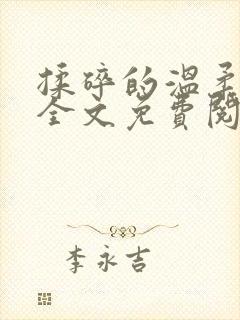 揉碎的温柔
全文免費閱
李永吉